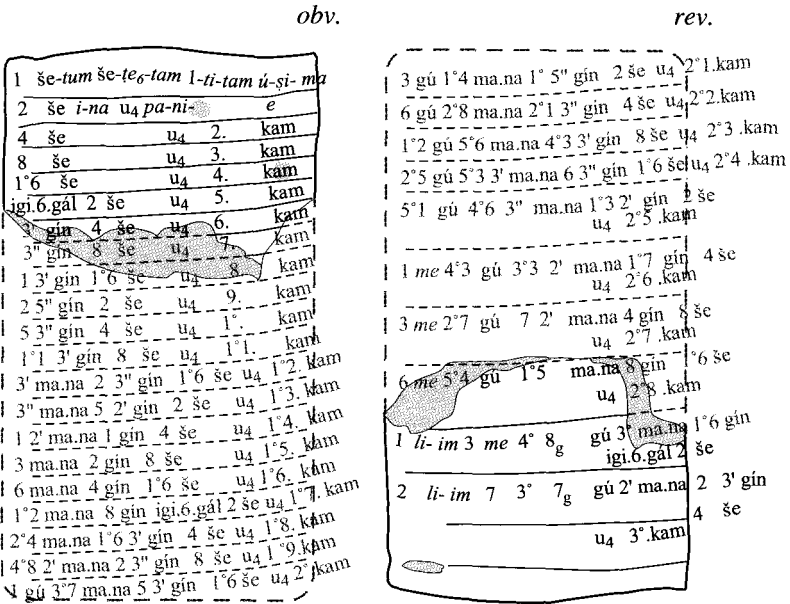 obv.
1 še-tum še-ṭe₆-tam 1-ti-tam ú-ṣi-ma
2 še i-na u₄ pa-ni- e
4 še u₄ 2. kam
8 še u₄ 3. kam
1°6 še u₄ 4. kam
igi.6.gál 2 še u₄ 5. kam
3' gín 4 še u₄ 6. kam
3" gín 8 še u₄ 7. kam
1 3' gín 1°6 še u₄ 8. kam
2 5" gín 2 še u₄ 9. kam
5 3" gín 4 še u₄ 1°. kam
1°1 3' gín 8 še u₄ 1°1. kam
3' ma.na 2 3" gín 1°6 še u₄ 1°2. kam
3" ma.na 5 2' gín 2 še u₄ 1°3. kam
1 2' ma.na 1 gín 4 še u₄ 1°4. kam
3 ma.na 2 gín 8 še u₄ 1°5. kam
6 ma.na 4 gín 1°6 še u₄ 1°6. kam
1°2 ma.na 8 gín igi.6.gál 2 še u₄ 1°7. kam
2°4 ma.na 1°6 3' gín 4 še u₄ 1°8. kam
4°8 2' ma.na 2 3" gín 8 še u₄ 1°9. kam
1 gú 3°7 ma.na 5 3' gín 1°6 še u₄ 2°. kam
rev.
3 gú 1°4 ma.na 1° 5" gín 2 še u₄ 2°1.kam
6 gú 2°8 ma.na 2°1 3" gín 4 še u₄ 2°2.kam
1°2 gú 5°6 ma.na 4°3 3' gín 8 še u₄ 2°3 .kam
2°5 gú 5°3 3' ma.na 6 3" gín 1°6 še u₄ 2°4 .kam
5°1 gú 4°6 3" ma.na 1°3 2' gín 2 še
u₄ 2°5 .kam
1 me 4°3 gú 3°3 2' ma.na 1°7 gín 4 še
u₄ 2°6 .kam
3 me 2°7 gú 7 2' ma.na 4 gín 8 še
u₄ 2°7 .kam
6 me 5°4 gú 1°5 ma.na 8 gín 1°6 še
u₄ 2°8 .kam
1 li- im 3 me 4° 8g gú 3° ma.na 1°6 gín
igi.6.gál 2 še
2 li- im 7 3° 7g gú 2' ma.na 2 3' gín
4 še
u₄ 3°.kam